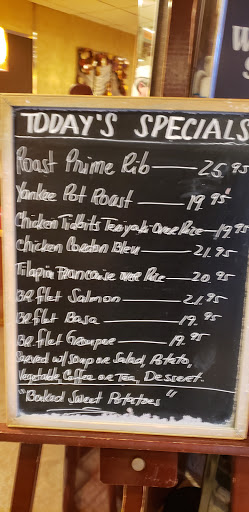 TODAY'S SPECIALS
Roast Prime Rib — 25.95
Yankee Pot Roast — 19.95
Chicken Tidbits Teriyaki Over Rice — 19.95
Chicken Cordon Bleu — 21.95
Tilapia Francaise over Rice — 20.95
BR. filet Salmon — 21.95
BR. filet Basa — 19.95
BR. filet Grouper — 19.95
Served w/ soup or Salad, Potato,
Vegetable Coffee or Tea, Dessert.
"Baked Sweet Potatoes"